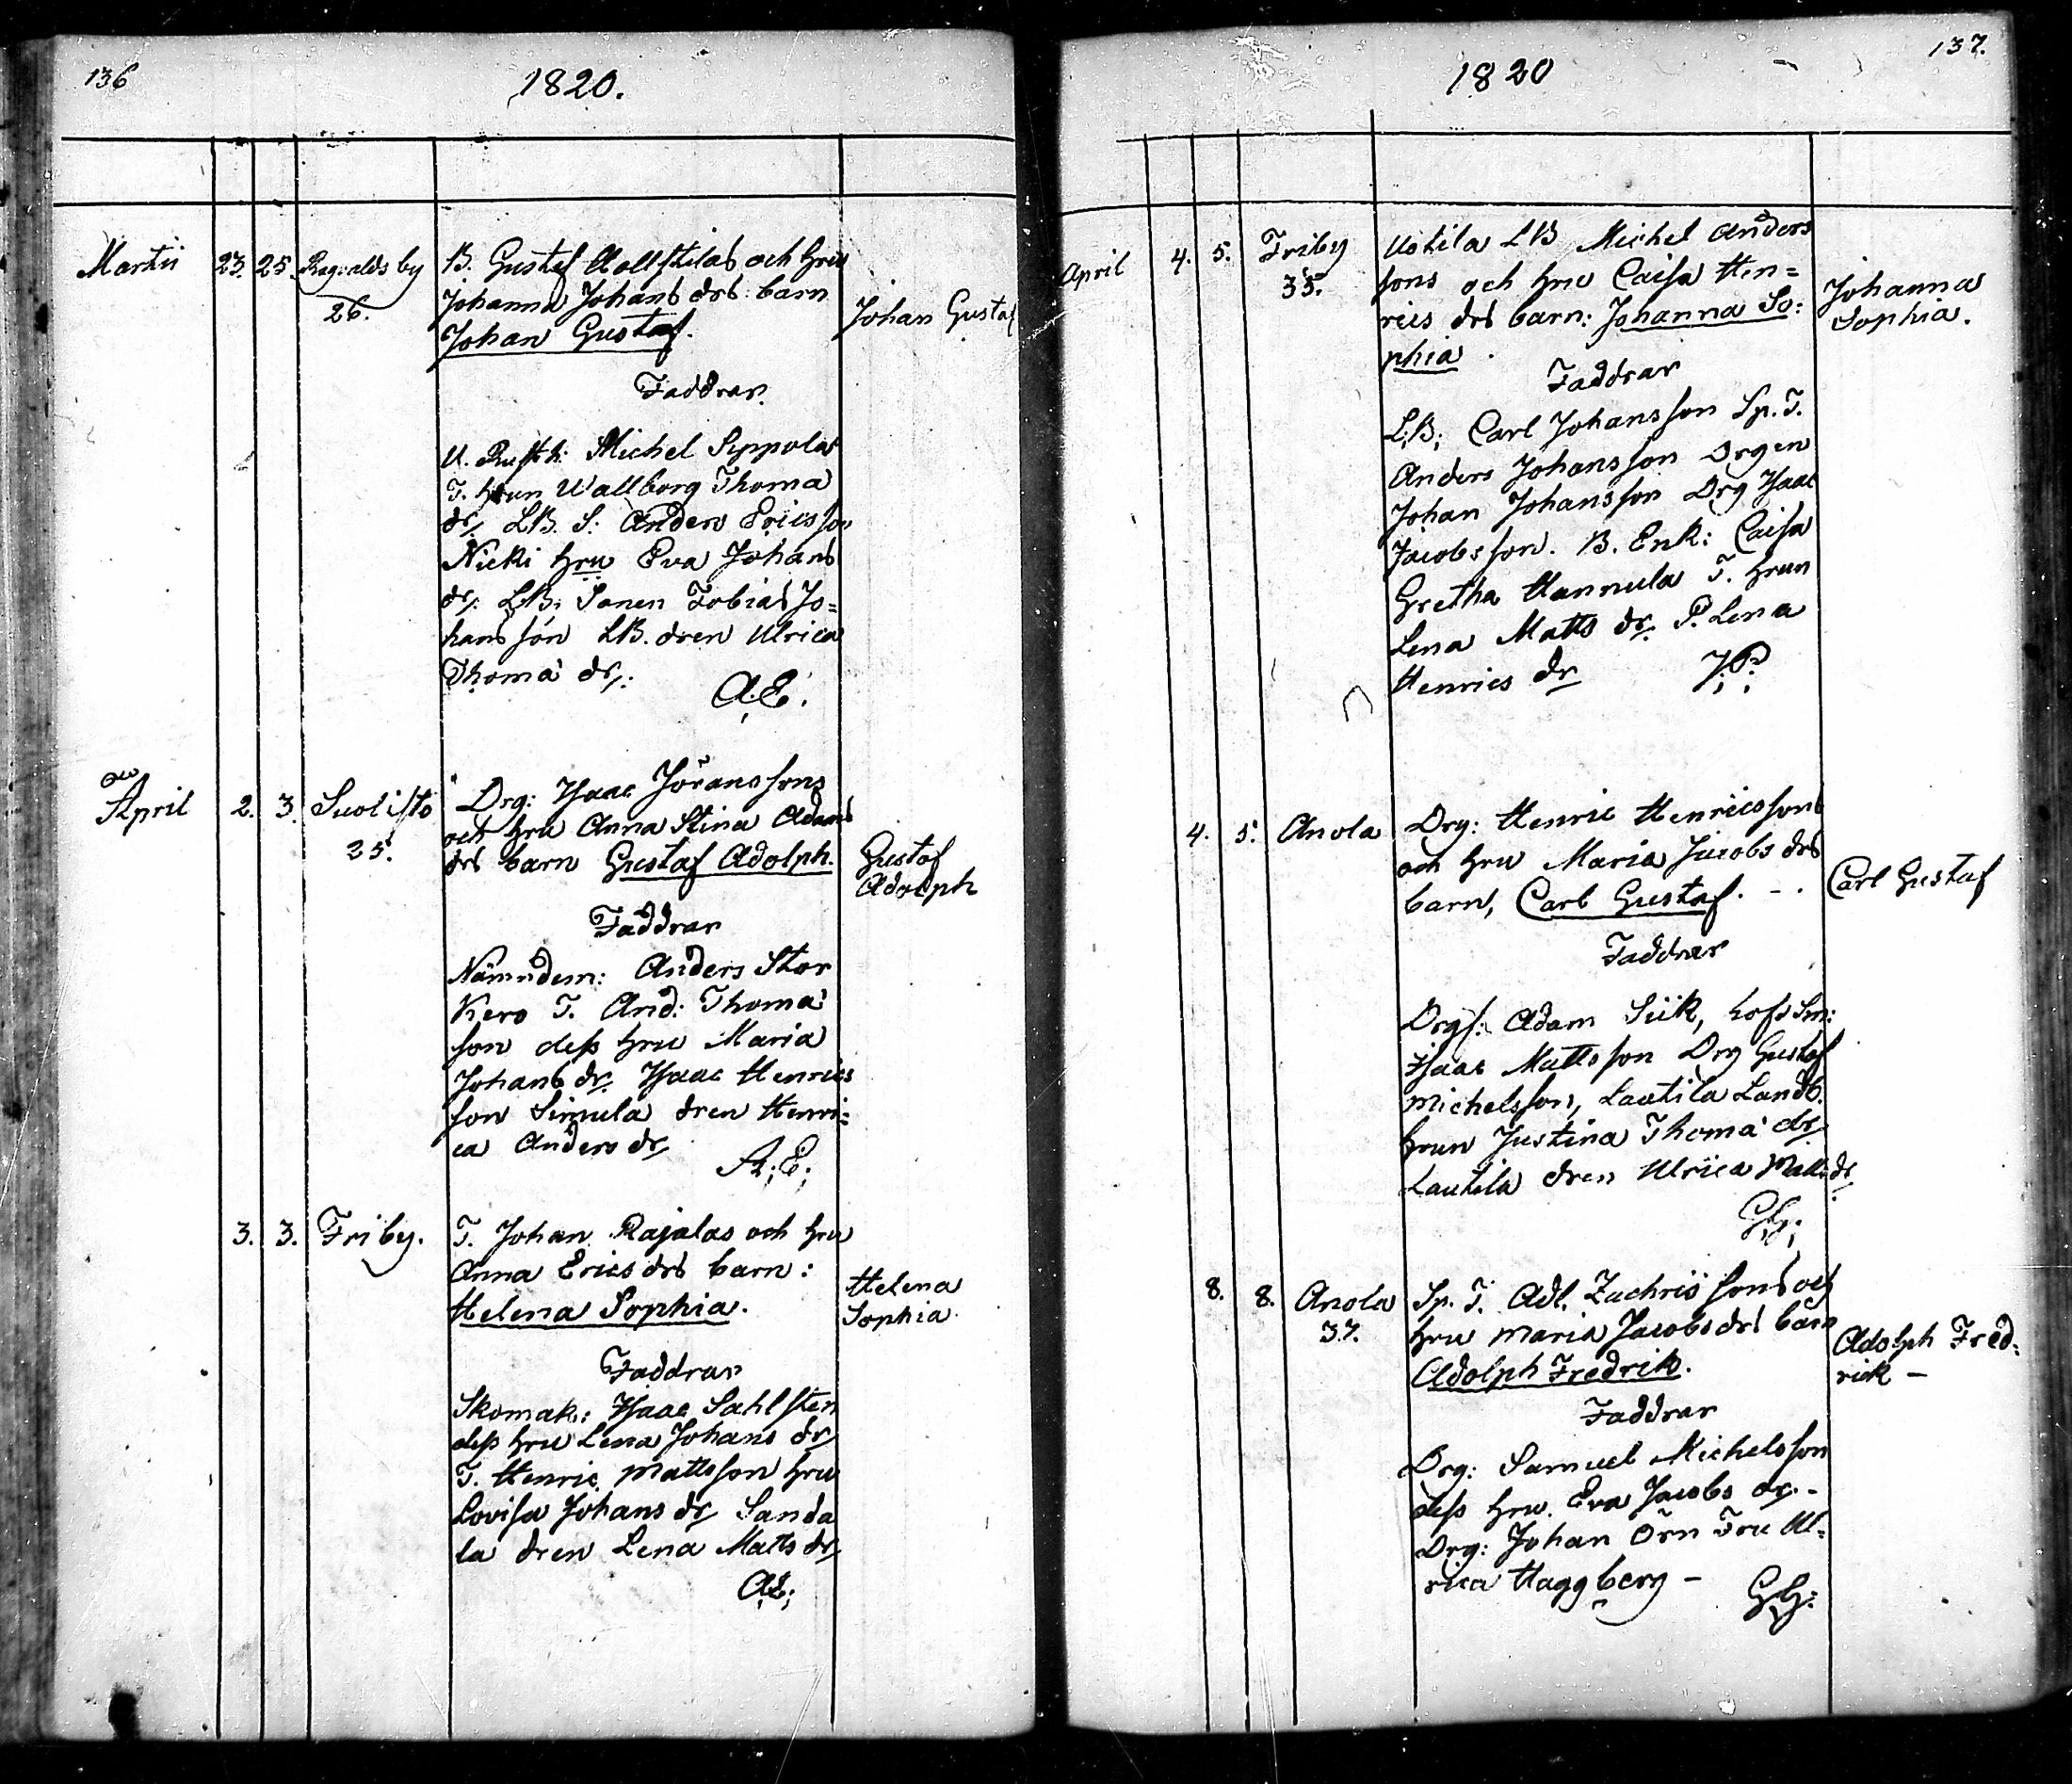 136
1820.
Martii 23. 25. Ragvaldsby
26.
B. Gustaf och hru
Johanna Johans drs barn
Johan Gustaf.
Johan Gustaf
Faddrar.
U. Rusth: Michel Sippolas
T. hrun Wallborg Thoma
dr, LB. S: Anders Ericsson
Nicki hru Eva Johans
dr: LB: Sonen Tobias Jo=
hansson LB. dren Ulrica
Thoma dr,:
A.E.
April 2. 3. Suolisto
25.
Drg: Isaac Joranssons
och hru Anna Stina Adams
drs barn Gustaf Adolph.
Gustaf
Adolph
Faddrar
Nämndem: Anders Stor
Kero T. And: Thoma
son dess hru Maria
Johans dr, Isaac Henrics
son Simula dren Henri=
ca Anders dr,
A:E;
3. 3. Friby.
T. Johan Rajalas och hru
Anna Erics drs barn:
Helena Sophia.
Helena
Sophia.
Faddrar
Skomak: Isaac Sahlsten
dess hru Lena Johans dr,
T. Henric Mattsson hru
Lovisa Johans dr, Sanda
la dren Lena Matts dr,
AE;
137.
1820
April 4. 5. Friby
35.
Uotila LB Michel Anders
sons och hru Caisa Hen=
rics drs barn: Johanna So:
phia.
Johanna
Sophia.
Faddrar
L.B; Carl Johansson Sp. T.
Anders Johansson Drgen
Johan Johansson Drg Isaac
Jacobsson. B. Enk: Caisa
Gretha Hannula T. hrun
Lena Matts dr, P. Lena
Henrics dr
J;P;
4. 5. Anola
Drg: Henric Henricssons
och hru Maria Jacobs drs
barn, Carl Gustaf. - .
Carl Gustaf
Faddrar
Drgs: Adam Siik, hofsSm:
Isaac Mattsson Drg Gustaf
Michelsson, Lautila Landb.
hrun Justina Thoma dr,
Lautila dren Ulrica Matts dr,
G;G;
8. 8. Anola
37.
Sp. T. Adl. Zachrissons och
hru Maria Jacobs drs barn
Adolph Fredrik.
Adolph Fred:
rick -
Faddrar
Drg: Samuel Michelsson
dess hru. Eva Jacobs dr. -
Drg: Johan Örn Fru Ul=
rica Haggberg -
G;G: